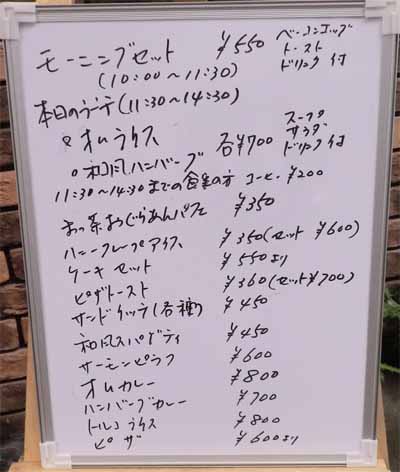 モーニングセット ¥550 ベーコンエッグ
トースト
ドリンク付
(10:00〜11:30)
本日のランチ(11:30〜14:30)
・オムライス
・和風ハンバーグ 各¥700 スープ
サラダ
ドリンク付
11:30〜14:30までの食事の方 コーヒー ¥200
まっ茶あずきパフェ ¥350
ハニークレープアイス ¥350(セット ¥600)
ケーキセット ¥550より
ピザトースト ¥360(セット¥700)
サンドイッチ(各種) ¥450
和風スパゲティ ¥450
サーモンピラフ ¥600
オムカレー ¥800
ハンバーグカレー ¥700
トルコライス ¥800
ピザ ¥600より